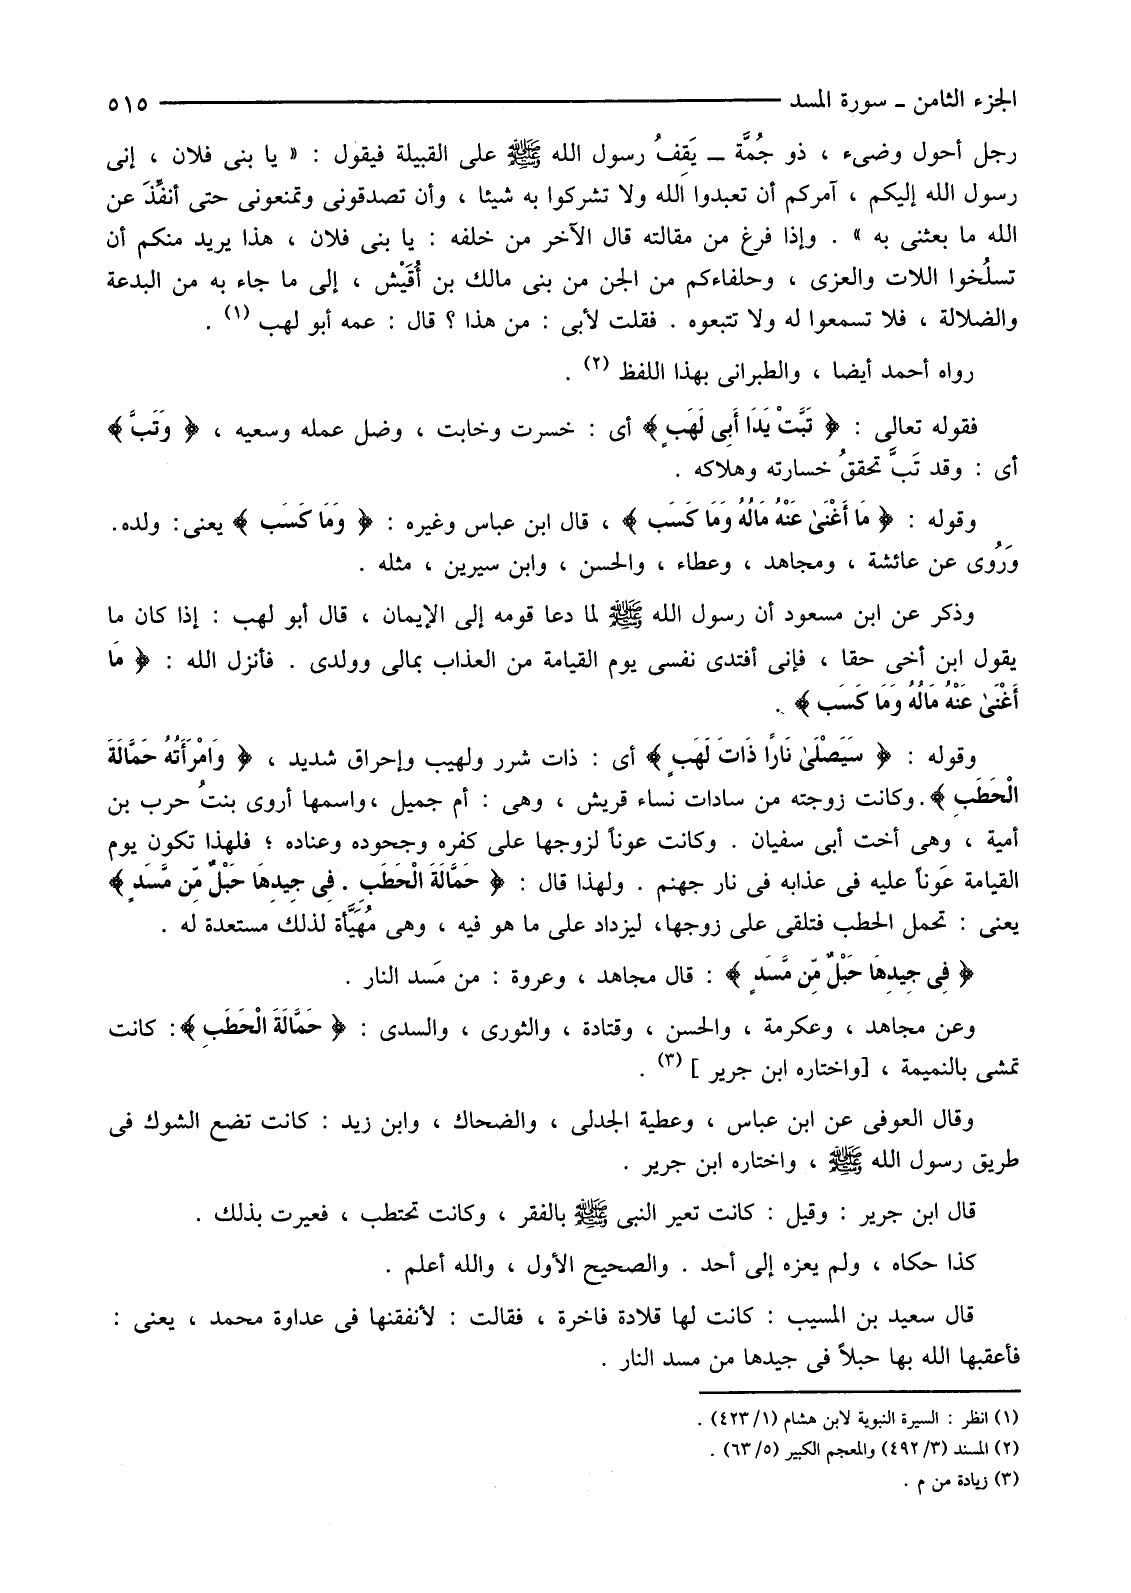 الجزء الثامن ـ سورة المسد ٥١٥
رجل أحول وضىء ، ذو جُمَّة ــ يَقِفُ رسول الله ﷺ على القبيلة فيقول : « يا بنى فلان ، إنى
رسول الله إليكم ، آمركم أن تعبدوا الله ولا تشركوا به شيئا ، وأن تصدقونى وتمنعونى حتى أنفِّذَ عن
الله ما بعثنى به » . وإذا فرغ من مقالته قال الآخر من خلفه : يا بنى فلان ، هذا يريد منكم أن
تسلُخوا اللات والعزى ، وحلفاءكم من الجن من بنى مالك بن أُقَيْش ، إلى ما جاء به من البدعة
والضلالة ، فلا تسمعوا له ولا تتبعوه . فقلت لأبى : من هذا ؟ قال : عمه أبو لهب (١) .
رواه أحمد أيضا ، والطبرانى بهذا اللفظ (٢) .
فقوله تعالى : ﴿ تَبَّتْ يَدَا أَبِى لَهَبٍ ﴾ أى : خسرت وخابت ، وضل عمله وسعيه ، ﴿ وَتَبَّ ﴾
أى : وقد تَبَّ تحققُ خسارته وهلاكه .
وقوله : ﴿ مَا أَغْنَىٰ عَنْهُ مَالُهُ وَمَا كَسَب ﴾ ، قال ابن عباس وغيره : ﴿ وَمَا كَسَب ﴾ يعنى: ولده.
وَرُوى عن عائشة ، ومجاهد ، وعطاء ، والحسن ، وابن سيرين ، مثله .
وذكر عن ابن مسعود أن رسول الله ﷺ لما دعا قومه إلى الإيمان ، قال أبو لهب : إذا كان ما
يقول ابن أخى حقا ، فإنى أفتدى نفسى يوم القيامة من العذاب بمالى وولدى . فأنزل الله : ﴿ مَا
أَغْنَىٰ عَنْهُ مَالُهُ وَمَا كَسَب ﴾ .
وقوله : ﴿ سَيَصْلَىٰ نَارًا ذَاتَ لَهَبٍ ﴾ أى : ذات شرر ولهيب وإحراق شديد ، ﴿ وَامْرَأَتُهُ حَمَّالَةَ
الْحَطَبِ ﴾. وكانت زوجته من سادات نساء قريش ، وهى : أم جميل ،واسمها أروى بنتُ حرب بن
أمية ، وهى أخت أبى سفيان . وكانت عوناً لزوجها على كفره وجحوده وعناده ؛ فلهذا تكون يوم
القيامة عَوناً عليه فى عذابه فى نار جهنم . ولهذا قال : ﴿ حَمَّالَةَ الْحَطَبِ . فِى جِيدِهَا حَبْلٌ مِّن مَّسَدٍ ﴾
يعنى : تحمل الحطب فتلقى على زوجها، ليزداد على ما هو فيه ، وهى مُهَيَّأة لذلك مستعدة له .
﴿ فِى جِيدِهَا حَبْلٌ مِّن مَّسَدٍ ﴾ : قال مجاهد ، وعروة : من مَسد النار .
وعن مجاهد ، وعكرمة ، والحسن ، وقتادة ، والثورى ، والسدى : ﴿ حَمَّالَةَ الْحَطَبِ ﴾: كانت
تمشى بالنميمة ، [واختاره ابن جرير ] (٣) .
وقال العوفى عن ابن عباس ، وعطية الجدلى ، والضحاك ، وابن زيد : كانت تضع الشوك فى
طريق رسول الله ﷺ ، واختاره ابن جرير .
قال ابن جرير : وقيل : كانت تعير النبى ﷺ بالفقر ، وكانت تحتطب ، فعيرت بذلك .
كذا حكاه ، ولم يعزه إلى أحد . والصحيح الأول ، والله أعلم .
قال سعيد بن المسيب : كانت لها قلادة فاخرة ، فقالت : لأنفقنها فى عداوة محمد ، يعنى :
فأعقبها الله بها حبلاً فى جيدها من مسد النار .
(١) انظر : السيرة النبوية لابن هشام (١/ ٤٢٣) .
(٢) المسند (٣/ ٤٩٢) والمعجم الكبير (٥/ ٦٣) .
(٣) زيادة من م .